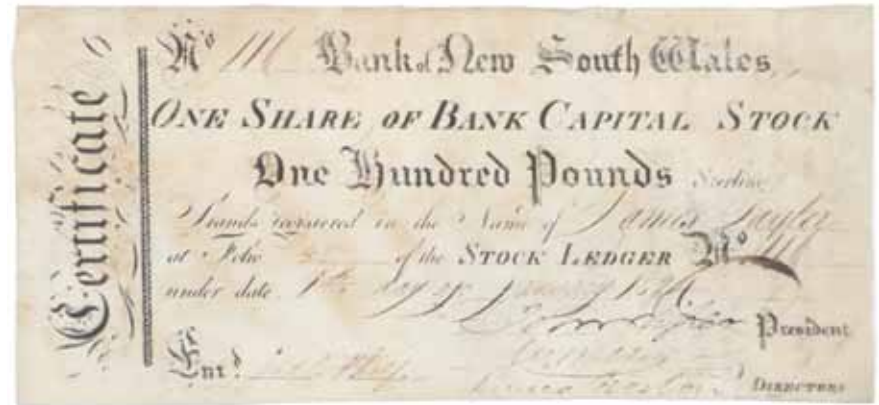 Certificate
No 111 Bank of New South Wales
ONE SHARE OF BANK CAPITAL STOCK
One Hundred Pounds Sterling
Stands registered in the Name of James Taylor
at Folio of the STOCK LEDGER No
under date day of January
President
Entd
DIRECTORS